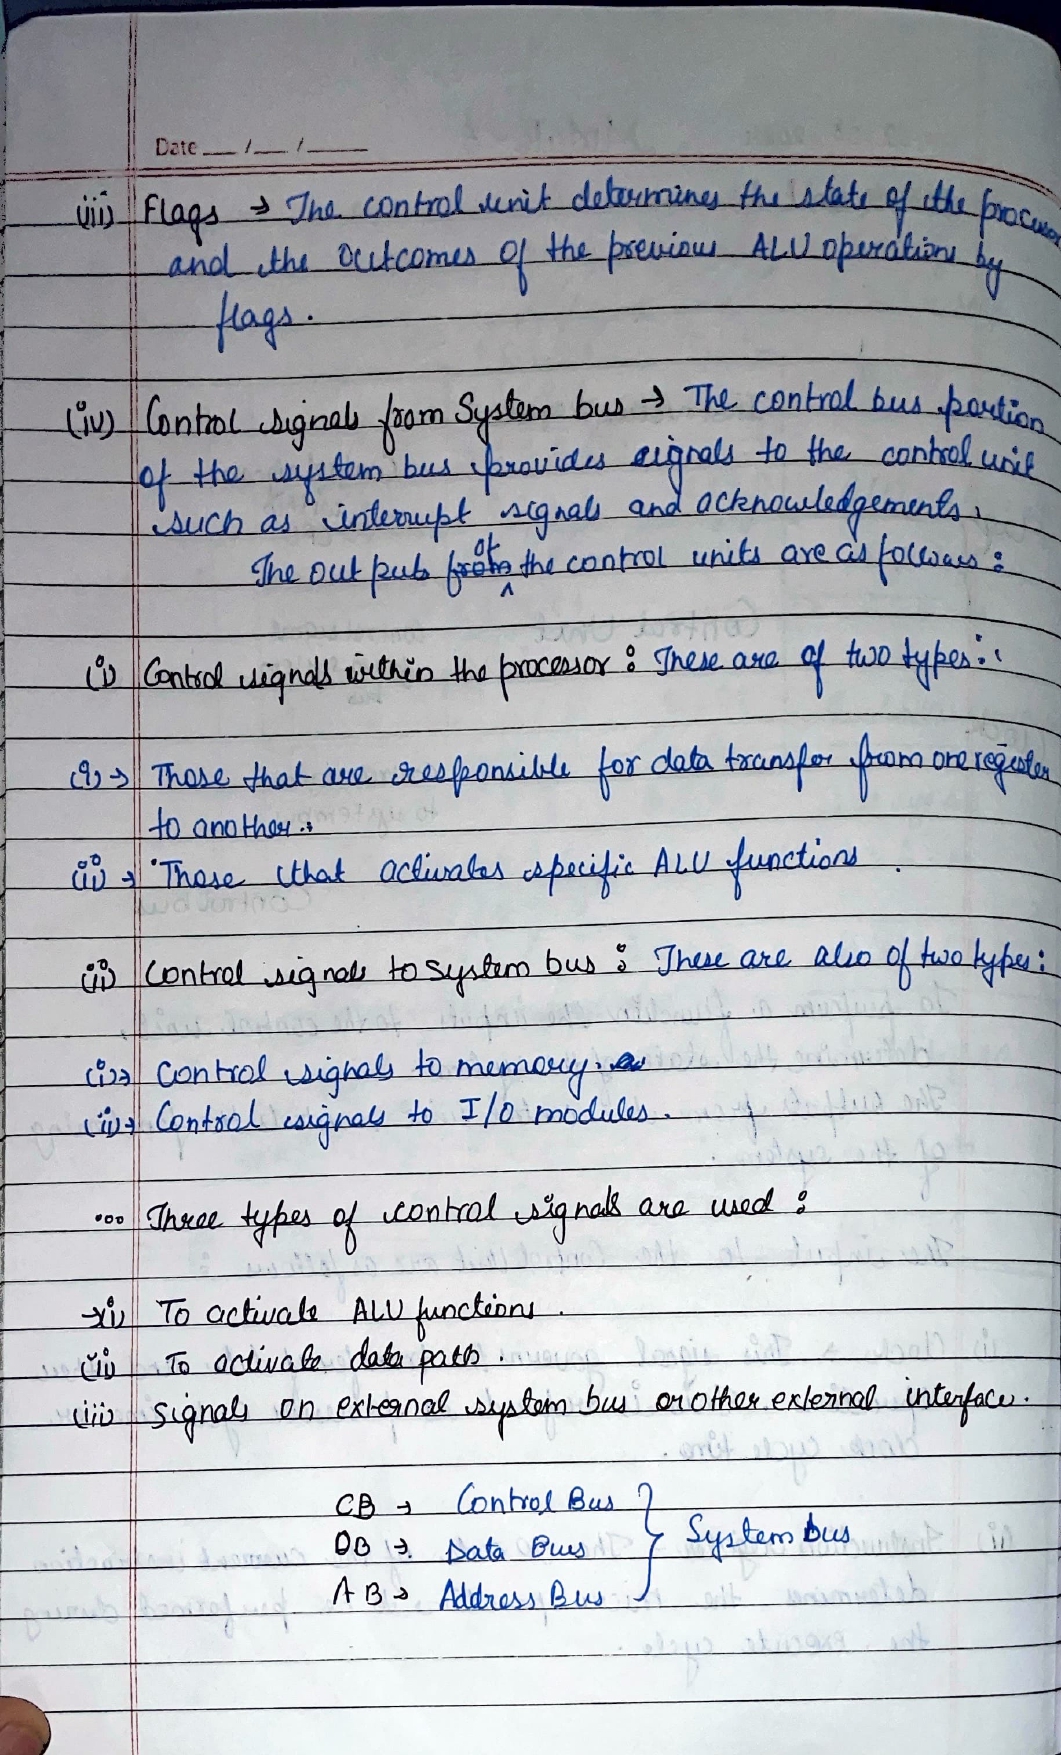 Date __ /__ /____
(iii) Flags → The control unit determines the state of the processor
and the outcomes of the previous ALU operations by
flags.
(iv) Control signals from System bus → The control bus portion
of the system bus provides signals to the control unit
such as interrupt signals and acknowledgements.
of
The outputs from the control units are as follows :
(i) Control signals within the processor : These are of two types :
(i) → Those that are responsible for data transfer from one register
to another.
(ii) → Those that activates specific ALU functions.
(ii) Control signals to system bus : These are also of two types :
(i) → Control signals to memory.
(ii) → Control signals to I/O modules.
Three types of control signals are used :
→ (i) To activate ALU functions.
(ii) To activate data path.
(iii) Signals on external system bus or other external interface.
CB → Control Bus
DB → Data Bus } System bus
AB → Address Bus